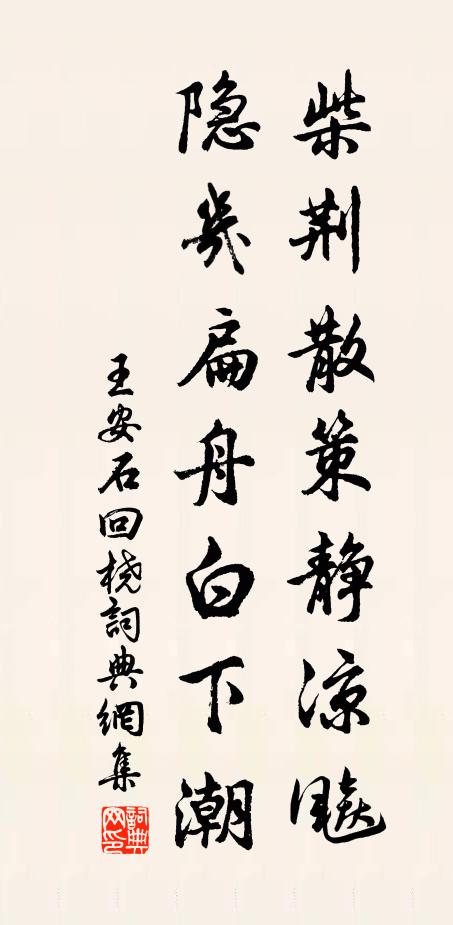 柴荆散策静凉飚
隐几扁舟白下潮
王安石回桡詞典網集
詞典网印